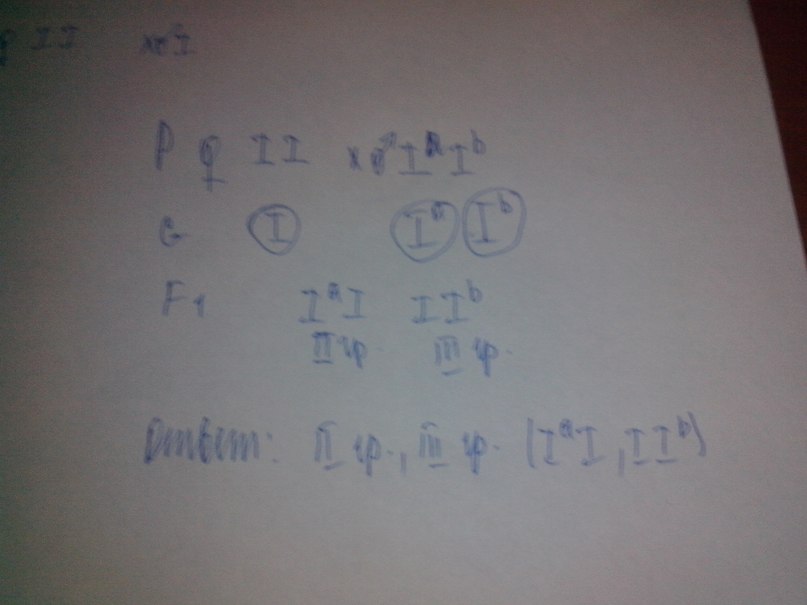 II x♂I
P ♀ II x♂IᵃIᵇ
G I Iᵃ Iᵇ
F1 IᵃI IIᵇ
II гр. III гр.
Ответ: II гр., III гр. (IᵃI, IIᵇ)